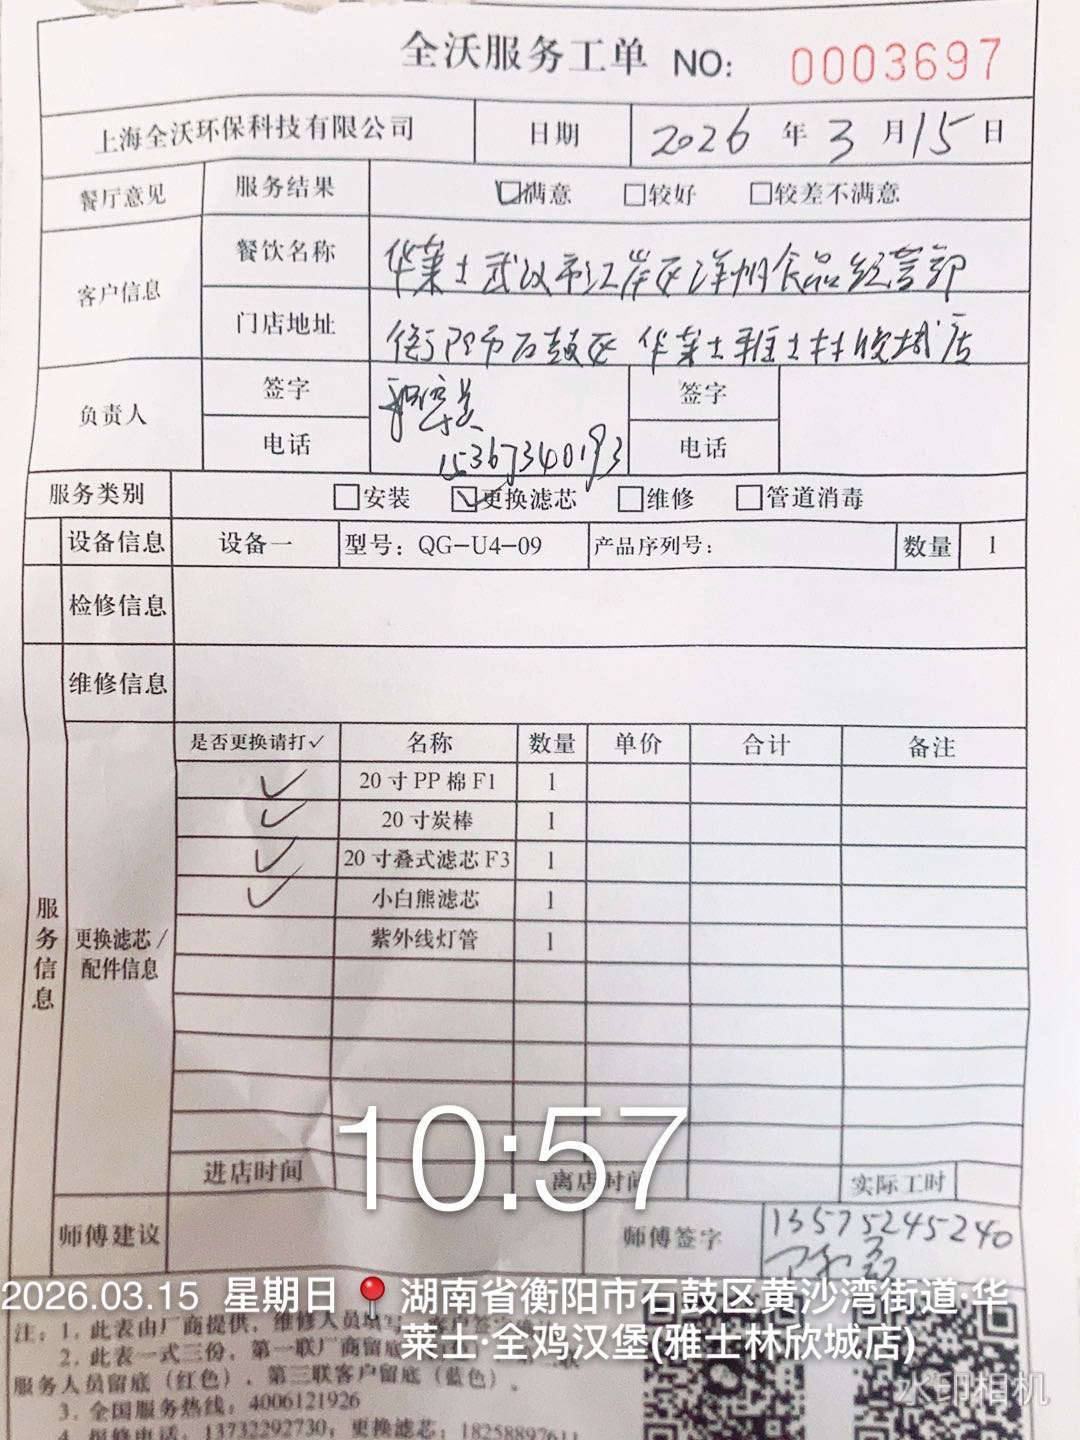 全沃服务工单 NO: 0003697
上海全沃环保科技有限公司 日期 2026 年 3 月 15 日
餐厅意见 服务结果 ☑满意 □较好 □较差不满意
客户信息 餐饮名称 华莱士武汉市江岸区洋州食品经营部
门店地址 衡阳市石鼓区华莱士雅士林欣城店
负责人 签字 签字
电话 15367340193 电话
服务类别 □安装 ☑更换滤芯 □维修 □管道消毒
设备信息 设备一 型号：QG-U4-09 产品序列号： 数量 1
检修信息
维修信息
服务信息
更换滤芯/
配件信息
是否更换请打✓ 名称 数量 单价 合计 备注
✓ 20寸PP棉F1 1
✓ 20寸炭棒 1
✓ 20寸叠式滤芯F3 1
✓ 小白熊滤芯 1
紫外线灯管 1
10:57
进店时间 离店时间 实际工时
师傅建议 师傅签字 13575245240
2026.03.15 星期日 湖南省衡阳市石鼓区黄沙湾街道·华
莱士·全鸡汉堡(雅士林欣城店)
注：1. 此表由厂商提供，维修人员填
2. 此表一式三份，第一联厂商留底
服务人员留底（红色），第三联客户留底（蓝色）。
3. 全国服务热线：4006121926
4. 报修电话：13732292730，更换滤芯：18258897611
水印相机